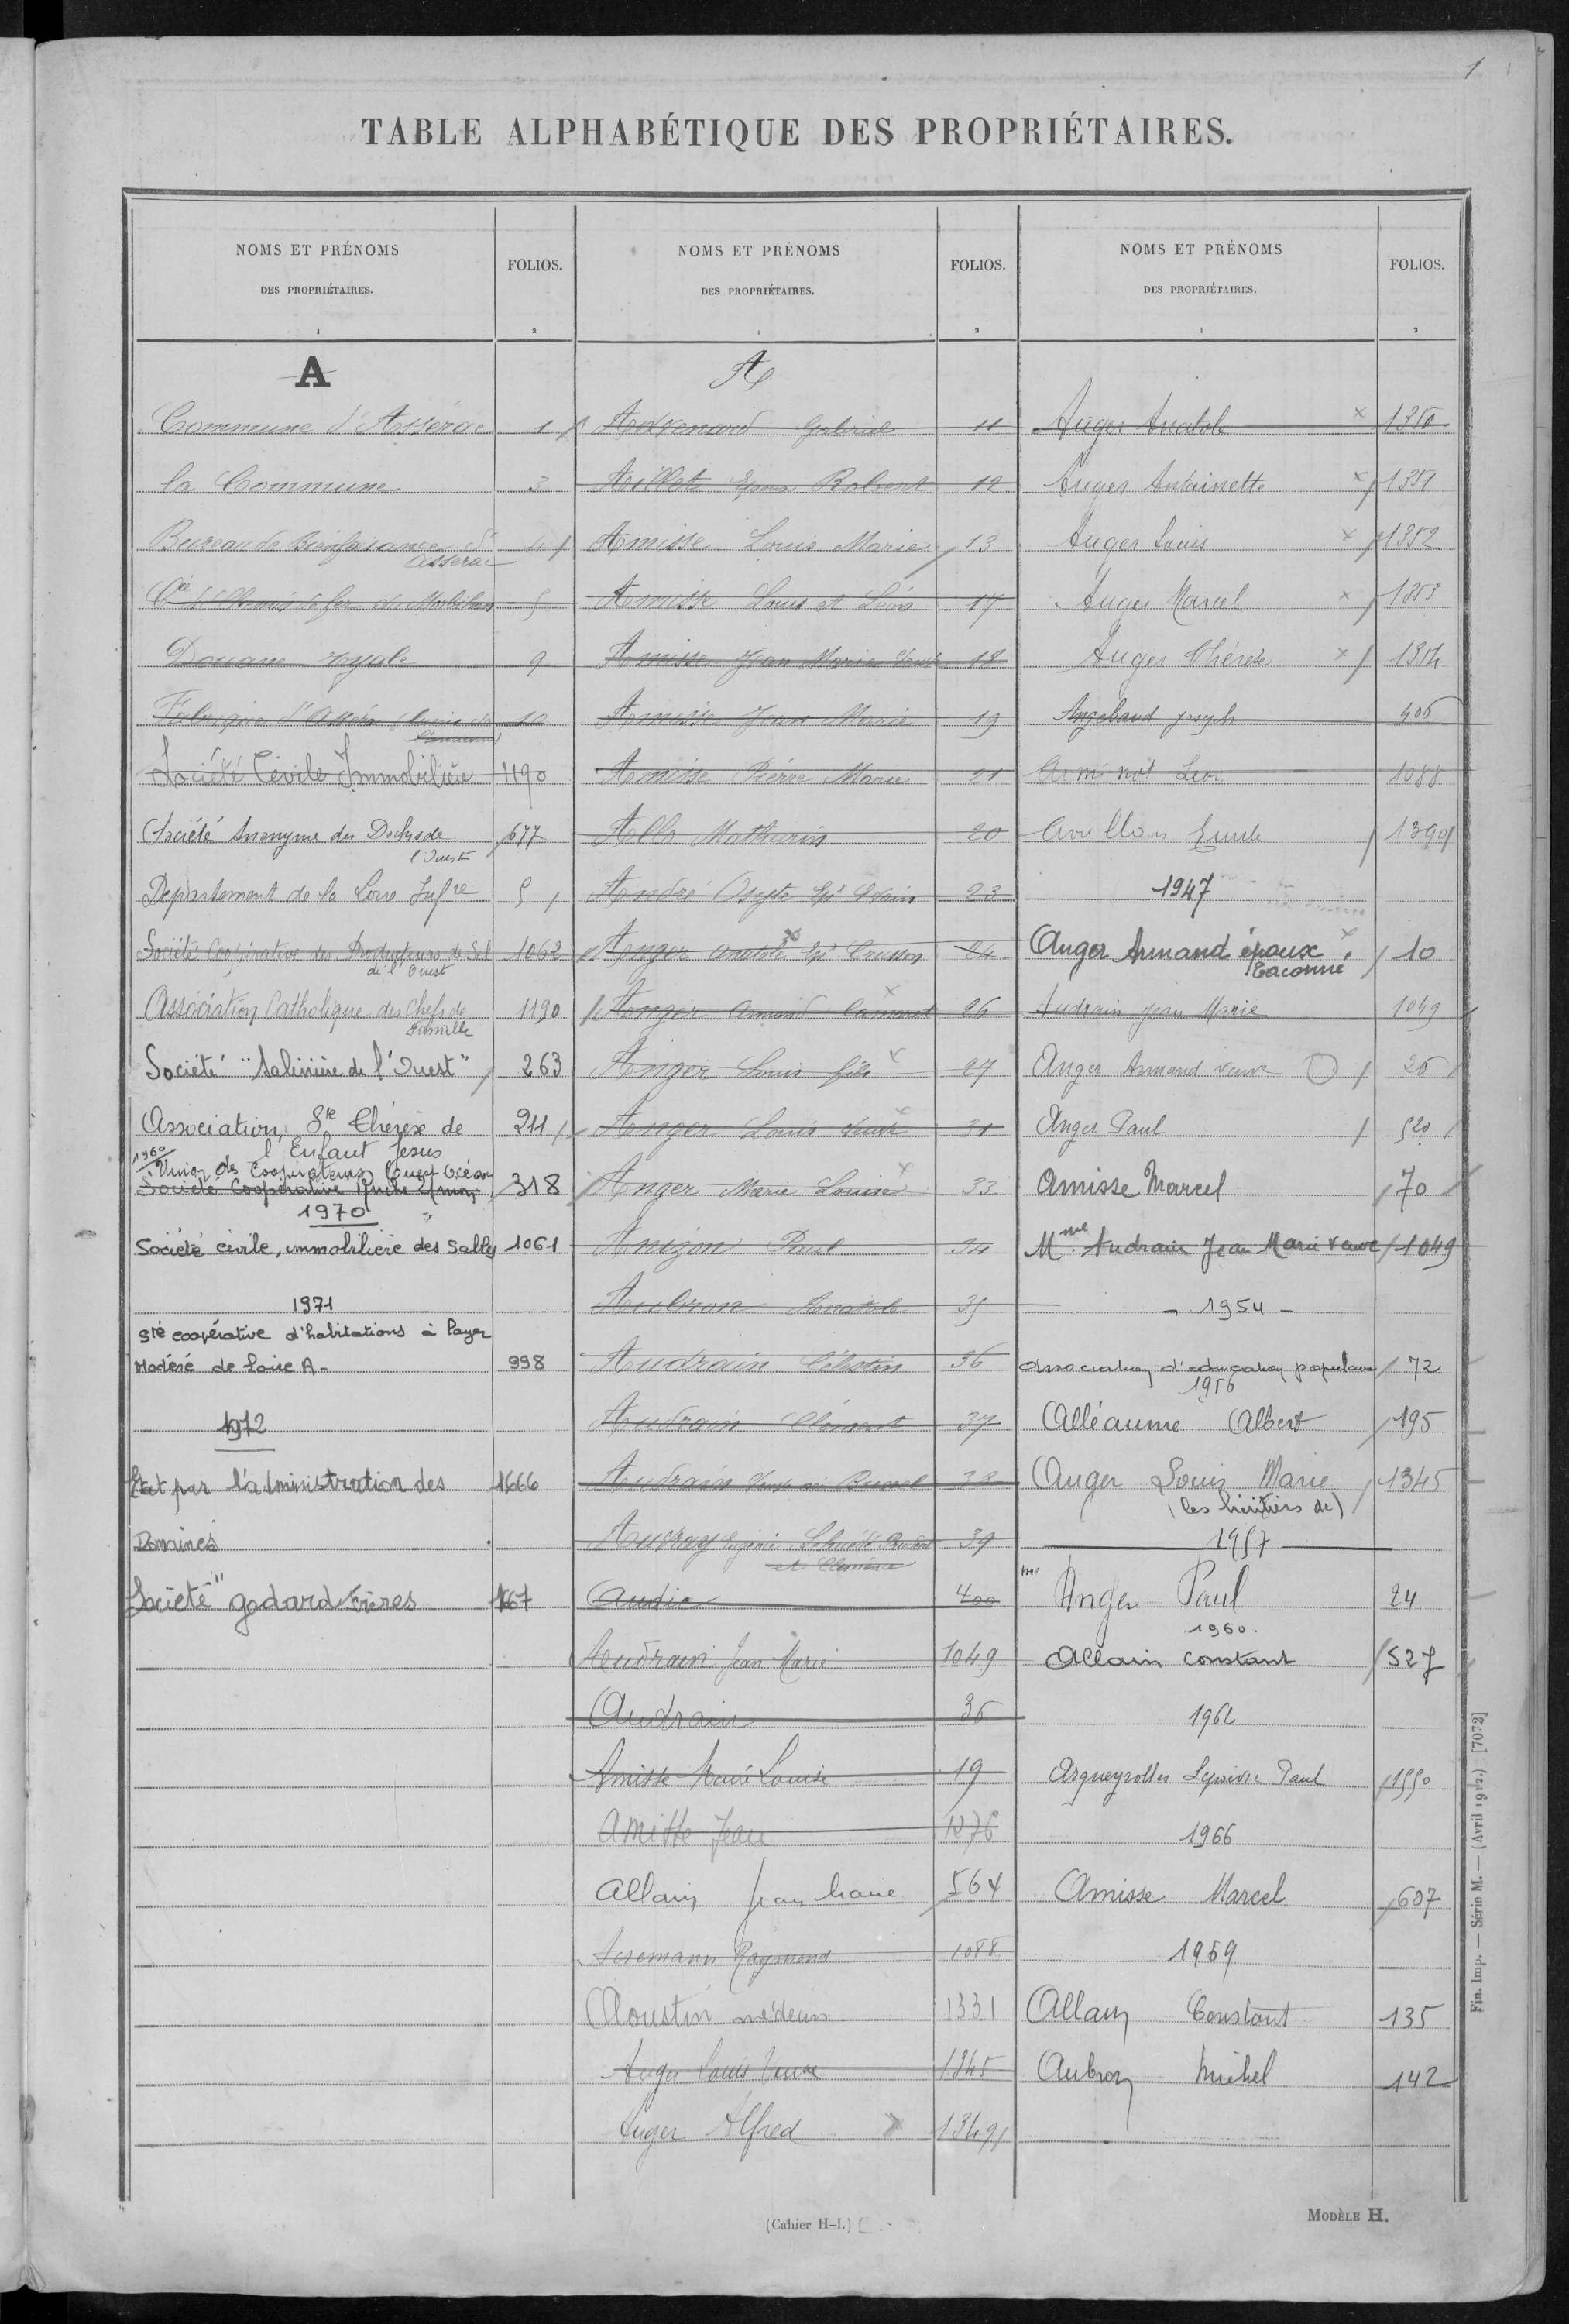 1
TABLE ALPHABÉTIQUE DES PROPRIÉTAIRES.
NOMS ET PRÉNOMS
DES PROPRIÉTAIRES.
1
FOLIOS.
2
A
Commune d'Assérac 1
la Commune 3
Bureau de Bienfaisance 4
Asserac
Cie de Chemin de fer du Morbihan 5
Douane royale 9
Fabrique d'Asséra 10
Société Civile Immobilière 1190
Société Anonyme des Docks de 677
l'Ouest
Departement de la Loire Infre 5
Société Coopérative des Producteurs de Sel 1062
de l'Ouest
Association Catholique des Chefs de 1190
Famille
Société "Salinière de l'Ouest" 263
Association Ste Thérèse de 211
l'Enfant Jesus
1960
Union des Coopérateurs Ouest Océan
Société Coopérative 318
1970
Société civile, immobilière des Salles 1061
1971
Sté coopérative d'habitations à loyer
Modéré de Loire A- 998
1972
Etat par l'administration des 1666
Domines
Société "godard Frères 167
NOMS ET PRÉNOMS
DES PROPRIÉTAIRES.
1
FOLIOS.
2
A
Gabriel 11
Robert 12
Amisse Louis Marie 13
Amisse Louis et Léon 17
Amisse Jean Marie 18
Amisse Jean Marie 19
Amisse Pierre Marie 21
Allo Mathurin 20
André 23
Anger Anatole 24
Anger Armand 26
Anger Louis fils 27
Anger Louis veuve 31
Anger Marie Louise 33
Anizon Paul 34
Aubron Anatole 35
Audrain Célestin 36
Audrain Clément 37
Audrain 38
Auvray 39
et Clémence
Audic 400
Audrain Jean Marie 1049
Audrain 36
Amisse Marie Louise 19
Amisse Jean 1276
Allain Jean Marie 564
Raymond 1088
Aoustin médecin 1331
Auger Louis Veuve 1345
Auger Alfred 1349
NOMS ET PRÉNOMS
DES PROPRIÉTAIRES.
1
FOLIOS.
2
Auger Anatole 1350
Auger Antoinette 1351
Auger Louis 1352
Auger Marcel 1353
Auger Thérèse 1354
Angebaud Joseph 406
Leon 1088
1390
1947
Anger Armand époux 10
Audrain Jean Marie 1049
Anger Armand veuve 26
Anger Paul 520
Amisse Marcel 70
Mme Audrain Jean Marie veuve 1049
- 1954 -
Association d'education populaire 72
1956
Alléaume Albert 195
Auger Louis Marie 1345
(les héritiers de)
1957
Anger Paul 24
1960.
Allain Constant 527
1962
Paul 1550
1966
Amisse Marcel 607
1969
Allain Constant 135
Aubron Michel 142
(Cahier H-I.)
MODÈLE H.
Fin. Imp. — Série M. — (Avril 1912.) [7072]